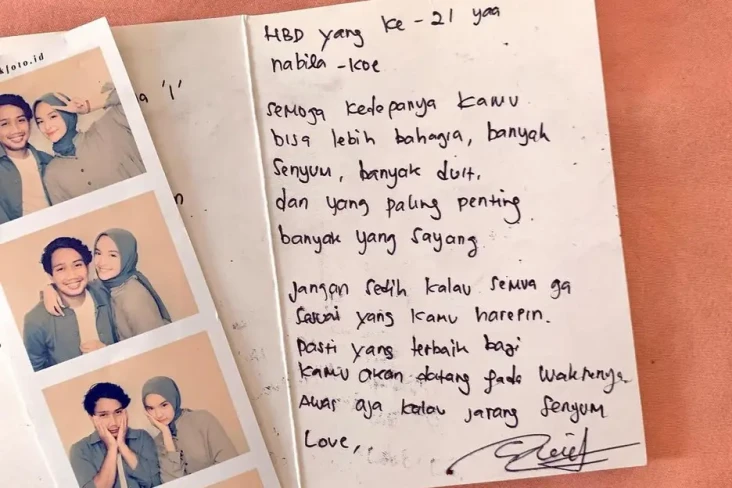 kfoto.id
a '1'
n
HBD yang ke-21 yaa
nabila-koe
semoga kedepanya kamu
bisa lebih bahagia, banyak
senyum, banyak duit,
dan yang paling penting
banyak yang sayang
Jangan sedih kalau semua ga
sesuai yang kamu harepin.
pasti yang terbaik bagi
kamu akan datang pada waktunya
Awas aja kalau jarang senyum
Love,